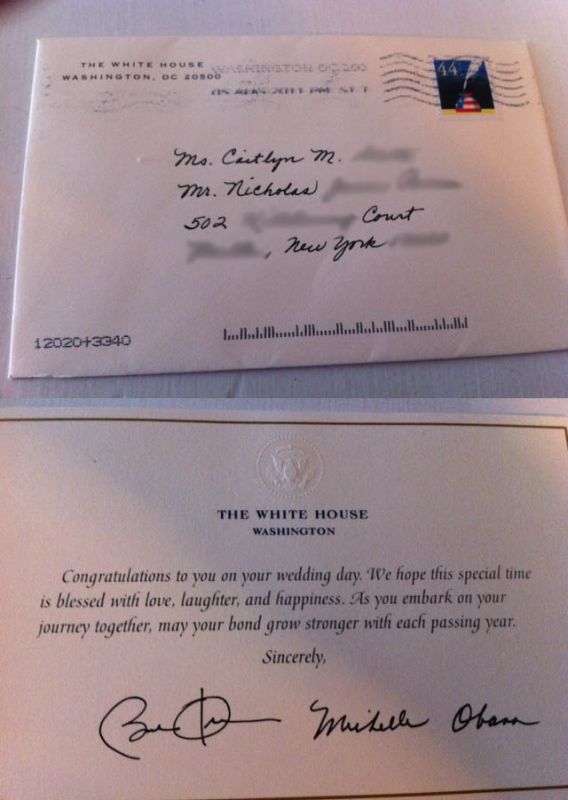 THE WHITE HOUSE
WASHINGTON, DC 20500
WASHINGTON DC 200
05 AUG 2011 PM
44
Ms. Caitlyn M.
Mr. Nicholas
502 Court
, New York
12020+3340
THE WHITE HOUSE
WASHINGTON
Congratulations to you on your wedding day. We hope this special time
is blessed with love, laughter, and happiness. As you embark on your
journey together, may your bond grow stronger with each passing year.
Sincerely,
Michelle Obama